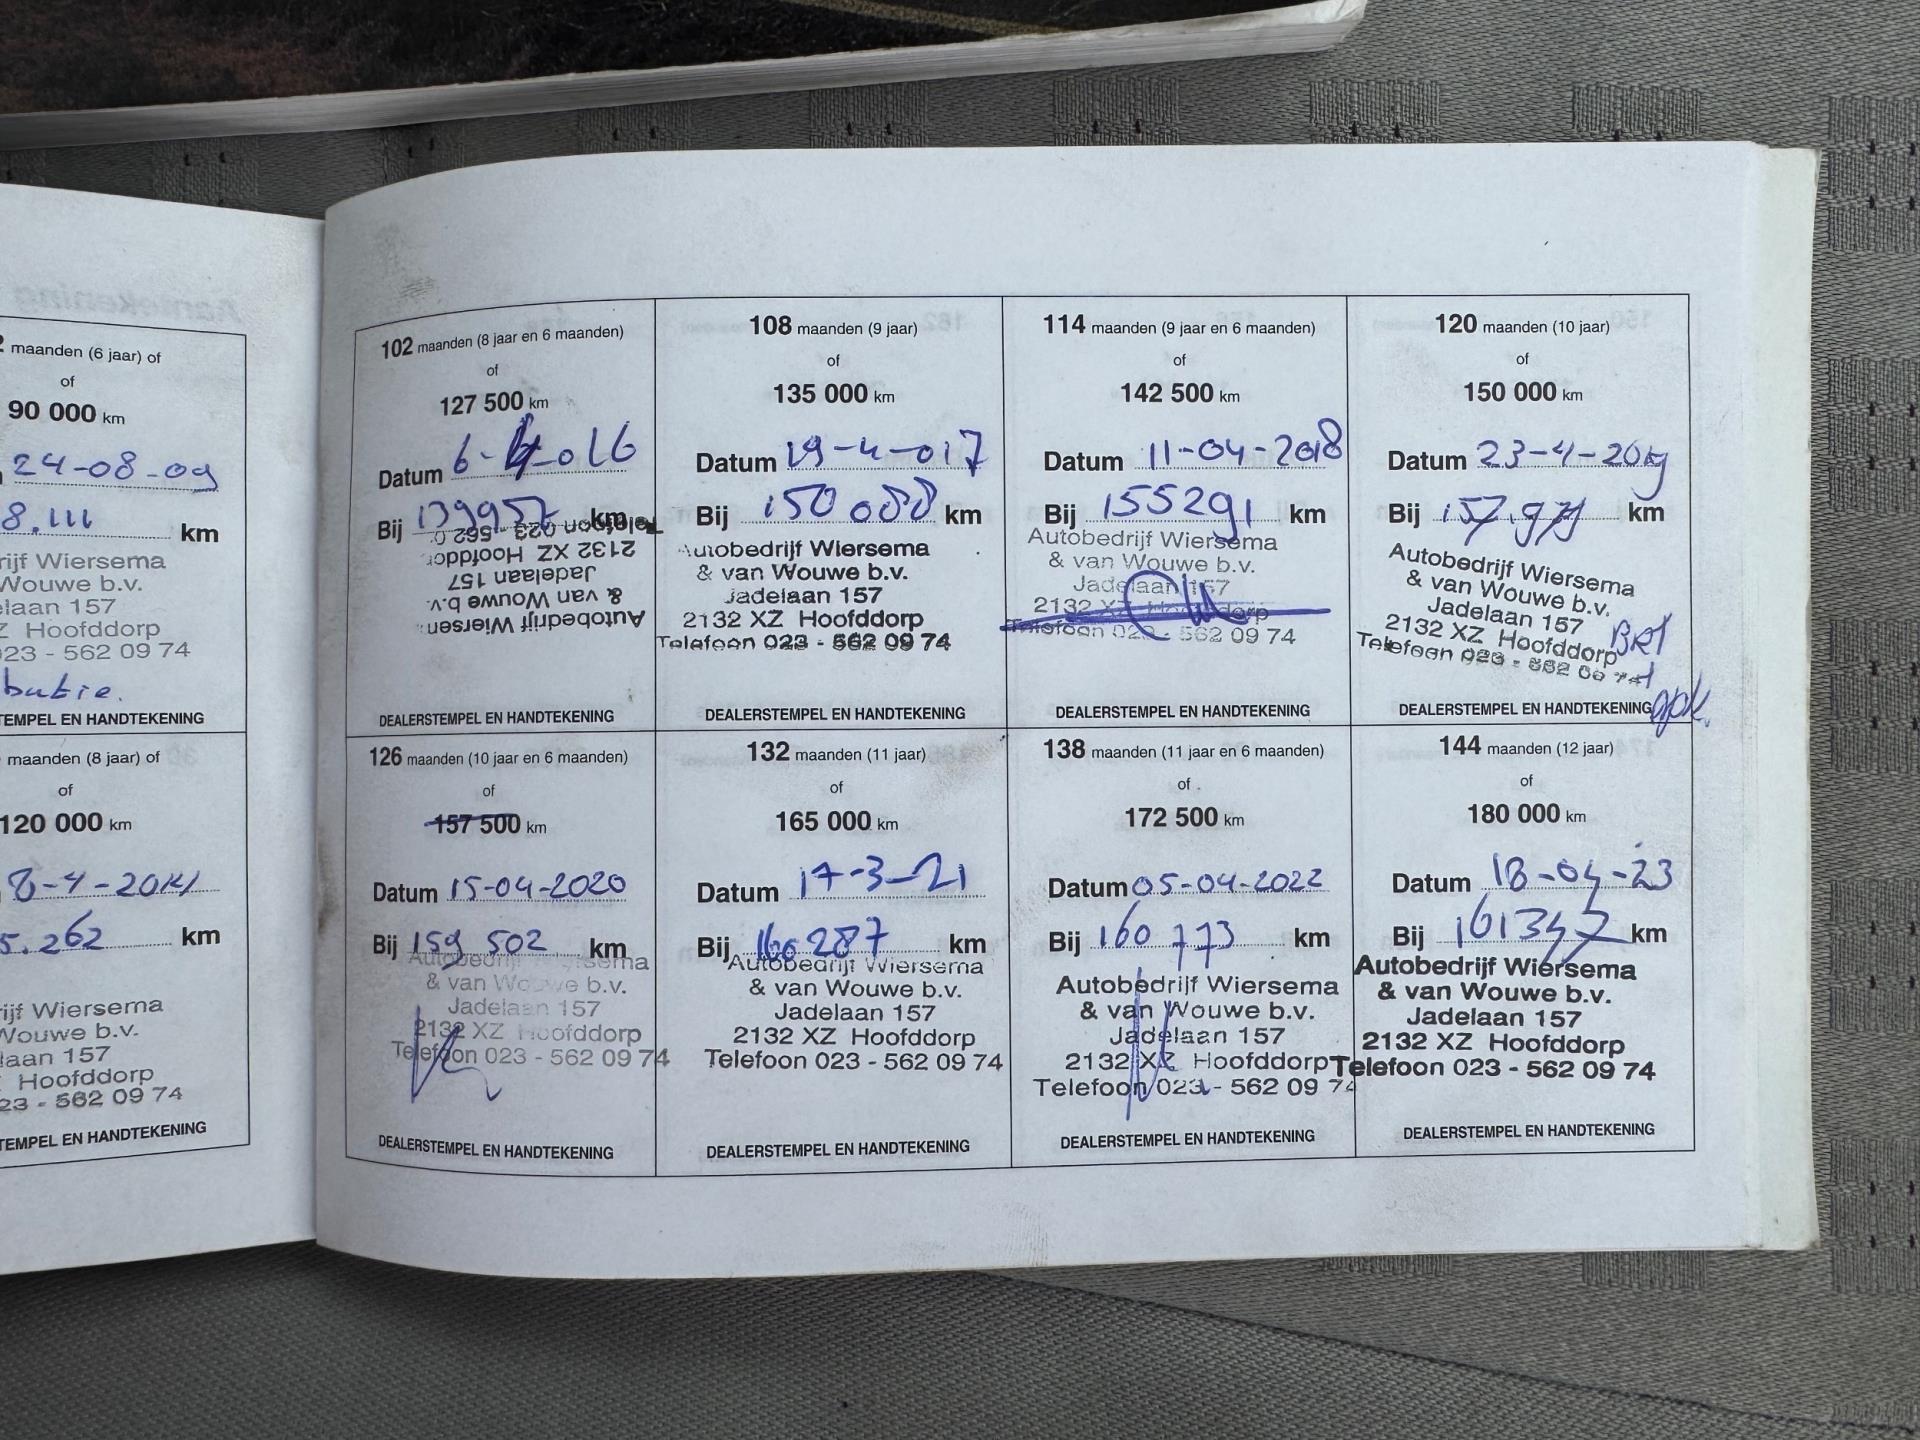 maanden (6 jaar) of
of
90 000 km
24-08-09
8.111 km
rijf Wiersema
Wouwe b.v.
elaan 157
Z Hoofddorp
023 - 562 09 74
TEMPEL EN HANDTEKENING
maanden (8 jaar) of
of
120 000 km
8-4-2014
5.262 km
rijf Wiersema
Wouwe b.v.
laan 157
Hoofddorp
23 - 562 09 74
TEMPEL EN HANDTEKENING
102 maanden (8 jaar en 6 maanden)
of
127 500 km
Datum 6-4-016
Bij 139957 km
Autobedrijf Wiersem
& van Wouwe b.v.
Jadelaan 157
2132 XZ Hoofddor
Telefoon 023 - 562 0
DEALERSTEMPEL EN HANDTEKENING
108 maanden (9 jaar)
of
135 000 km
Datum 19-4-017
Bij 150088 km
Autobedrijf Wiersema
& van Wouwe b.v.
Jadelaan 157
2132 XZ Hoofddorp
Telefoon 023 - 562 09 74
DEALERSTEMPEL EN HANDTEKENING
114 maanden (9 jaar en 6 maanden)
of
142 500 km
Datum 11-04-2018
Bij 155291 km
Autobedrijf Wiersema
& van Wouwe b.v.
Jadelaan 157
2132 XZ Hoofddorp
Telefoon 023 - 562 09 74
DEALERSTEMPEL EN HANDTEKENING
120 maanden (10 jaar)
of
150 000 km
Datum 23-4-2019
Bij 157.971 km
Autobedrijf Wiersema
& van Wouwe b.v.
Jadelaan 157
2132 XZ Hoofddorp
Telefoon 023 - 562 09 74
DEALERSTEMPEL EN HANDTEKENING
126 maanden (10 jaar en 6 maanden)
of
157 500 km
Datum 15-04-2020
Bij 159 502 km
Autobedrijf Wiersema
& van Wouwe b.v.
Jadelaan 157
2132 XZ Hoofddorp
Telefoon 023 - 562 09 74
DEALERSTEMPEL EN HANDTEKENING
132 maanden (11 jaar)
of
165 000 km
Datum 17-3-21
Bij 160287 km
Autobedrijf Wiersema
& van Wouwe b.v.
Jadelaan 157
2132 XZ Hoofddorp
Telefoon 023 - 562 09 74
DEALERSTEMPEL EN HANDTEKENING
138 maanden (11 jaar en 6 maanden)
of
172 500 km
Datum 05-04-2022
Bij 160 773 km
Autobedrijf Wiersema
& van Wouwe b.v.
Jadelaan 157
2132 XZ Hoofddorp
Telefoon 023 - 562 09 74
DEALERSTEMPEL EN HANDTEKENING
144 maanden (12 jaar)
of
180 000 km
Datum 18-04-23
Bij 161347 km
Autobedrijf Wiersema
& van Wouwe b.v.
Jadelaan 157
2132 XZ Hoofddorp
Telefoon 023 - 562 09 74
DEALERSTEMPEL EN HANDTEKENING